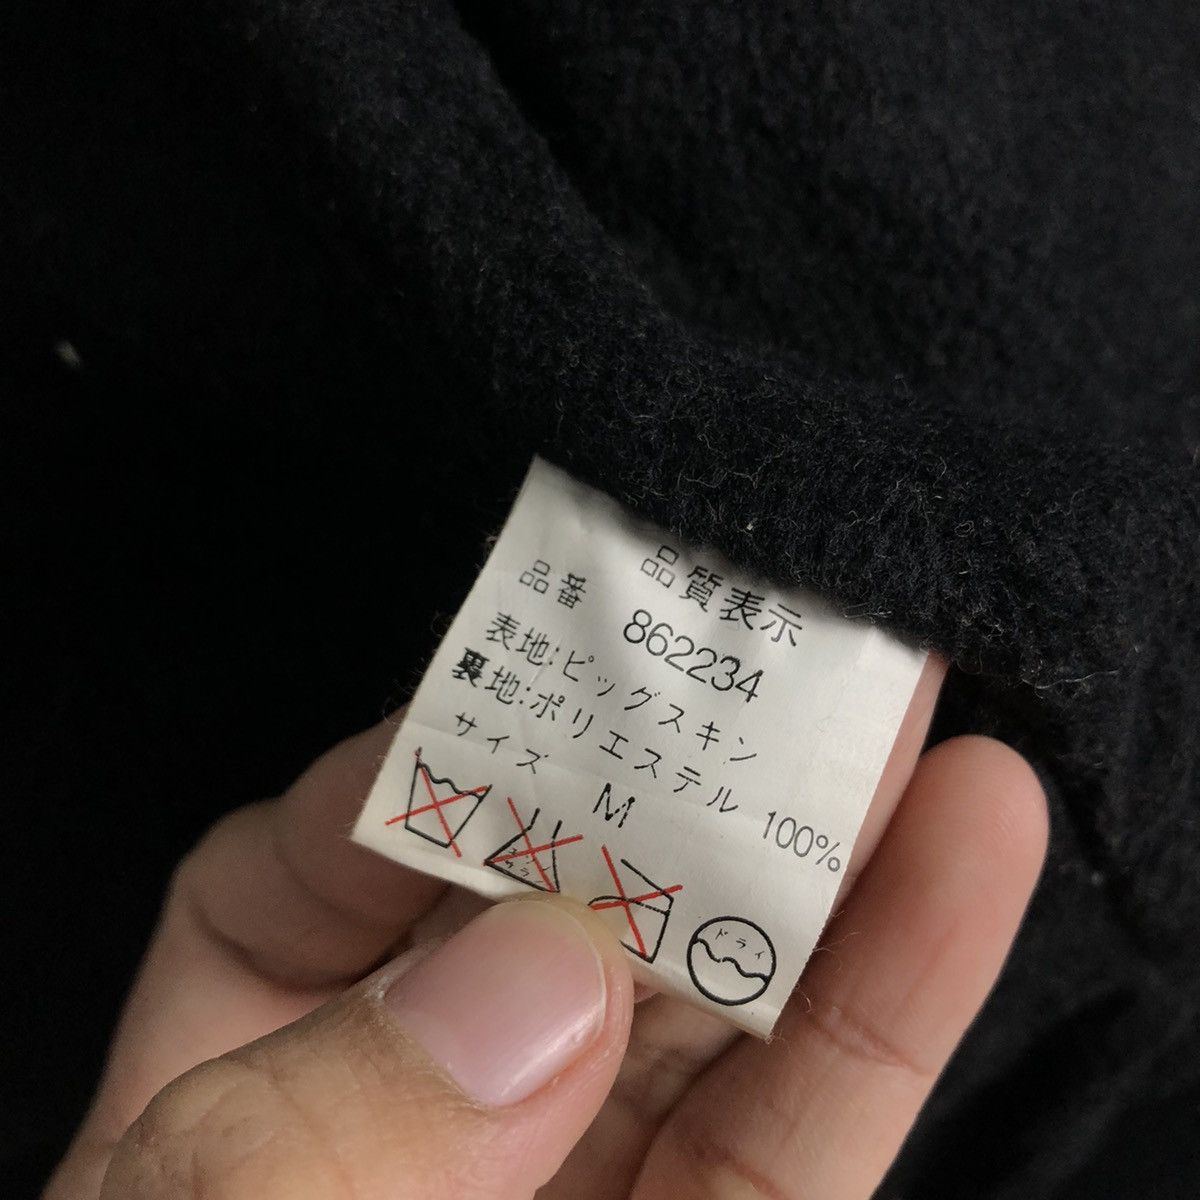 品質表示
品番 862234
表地:ピッグスキン
裏地:ポリエステル 100%
サイズ M
エンソ
サラシ
ドライ